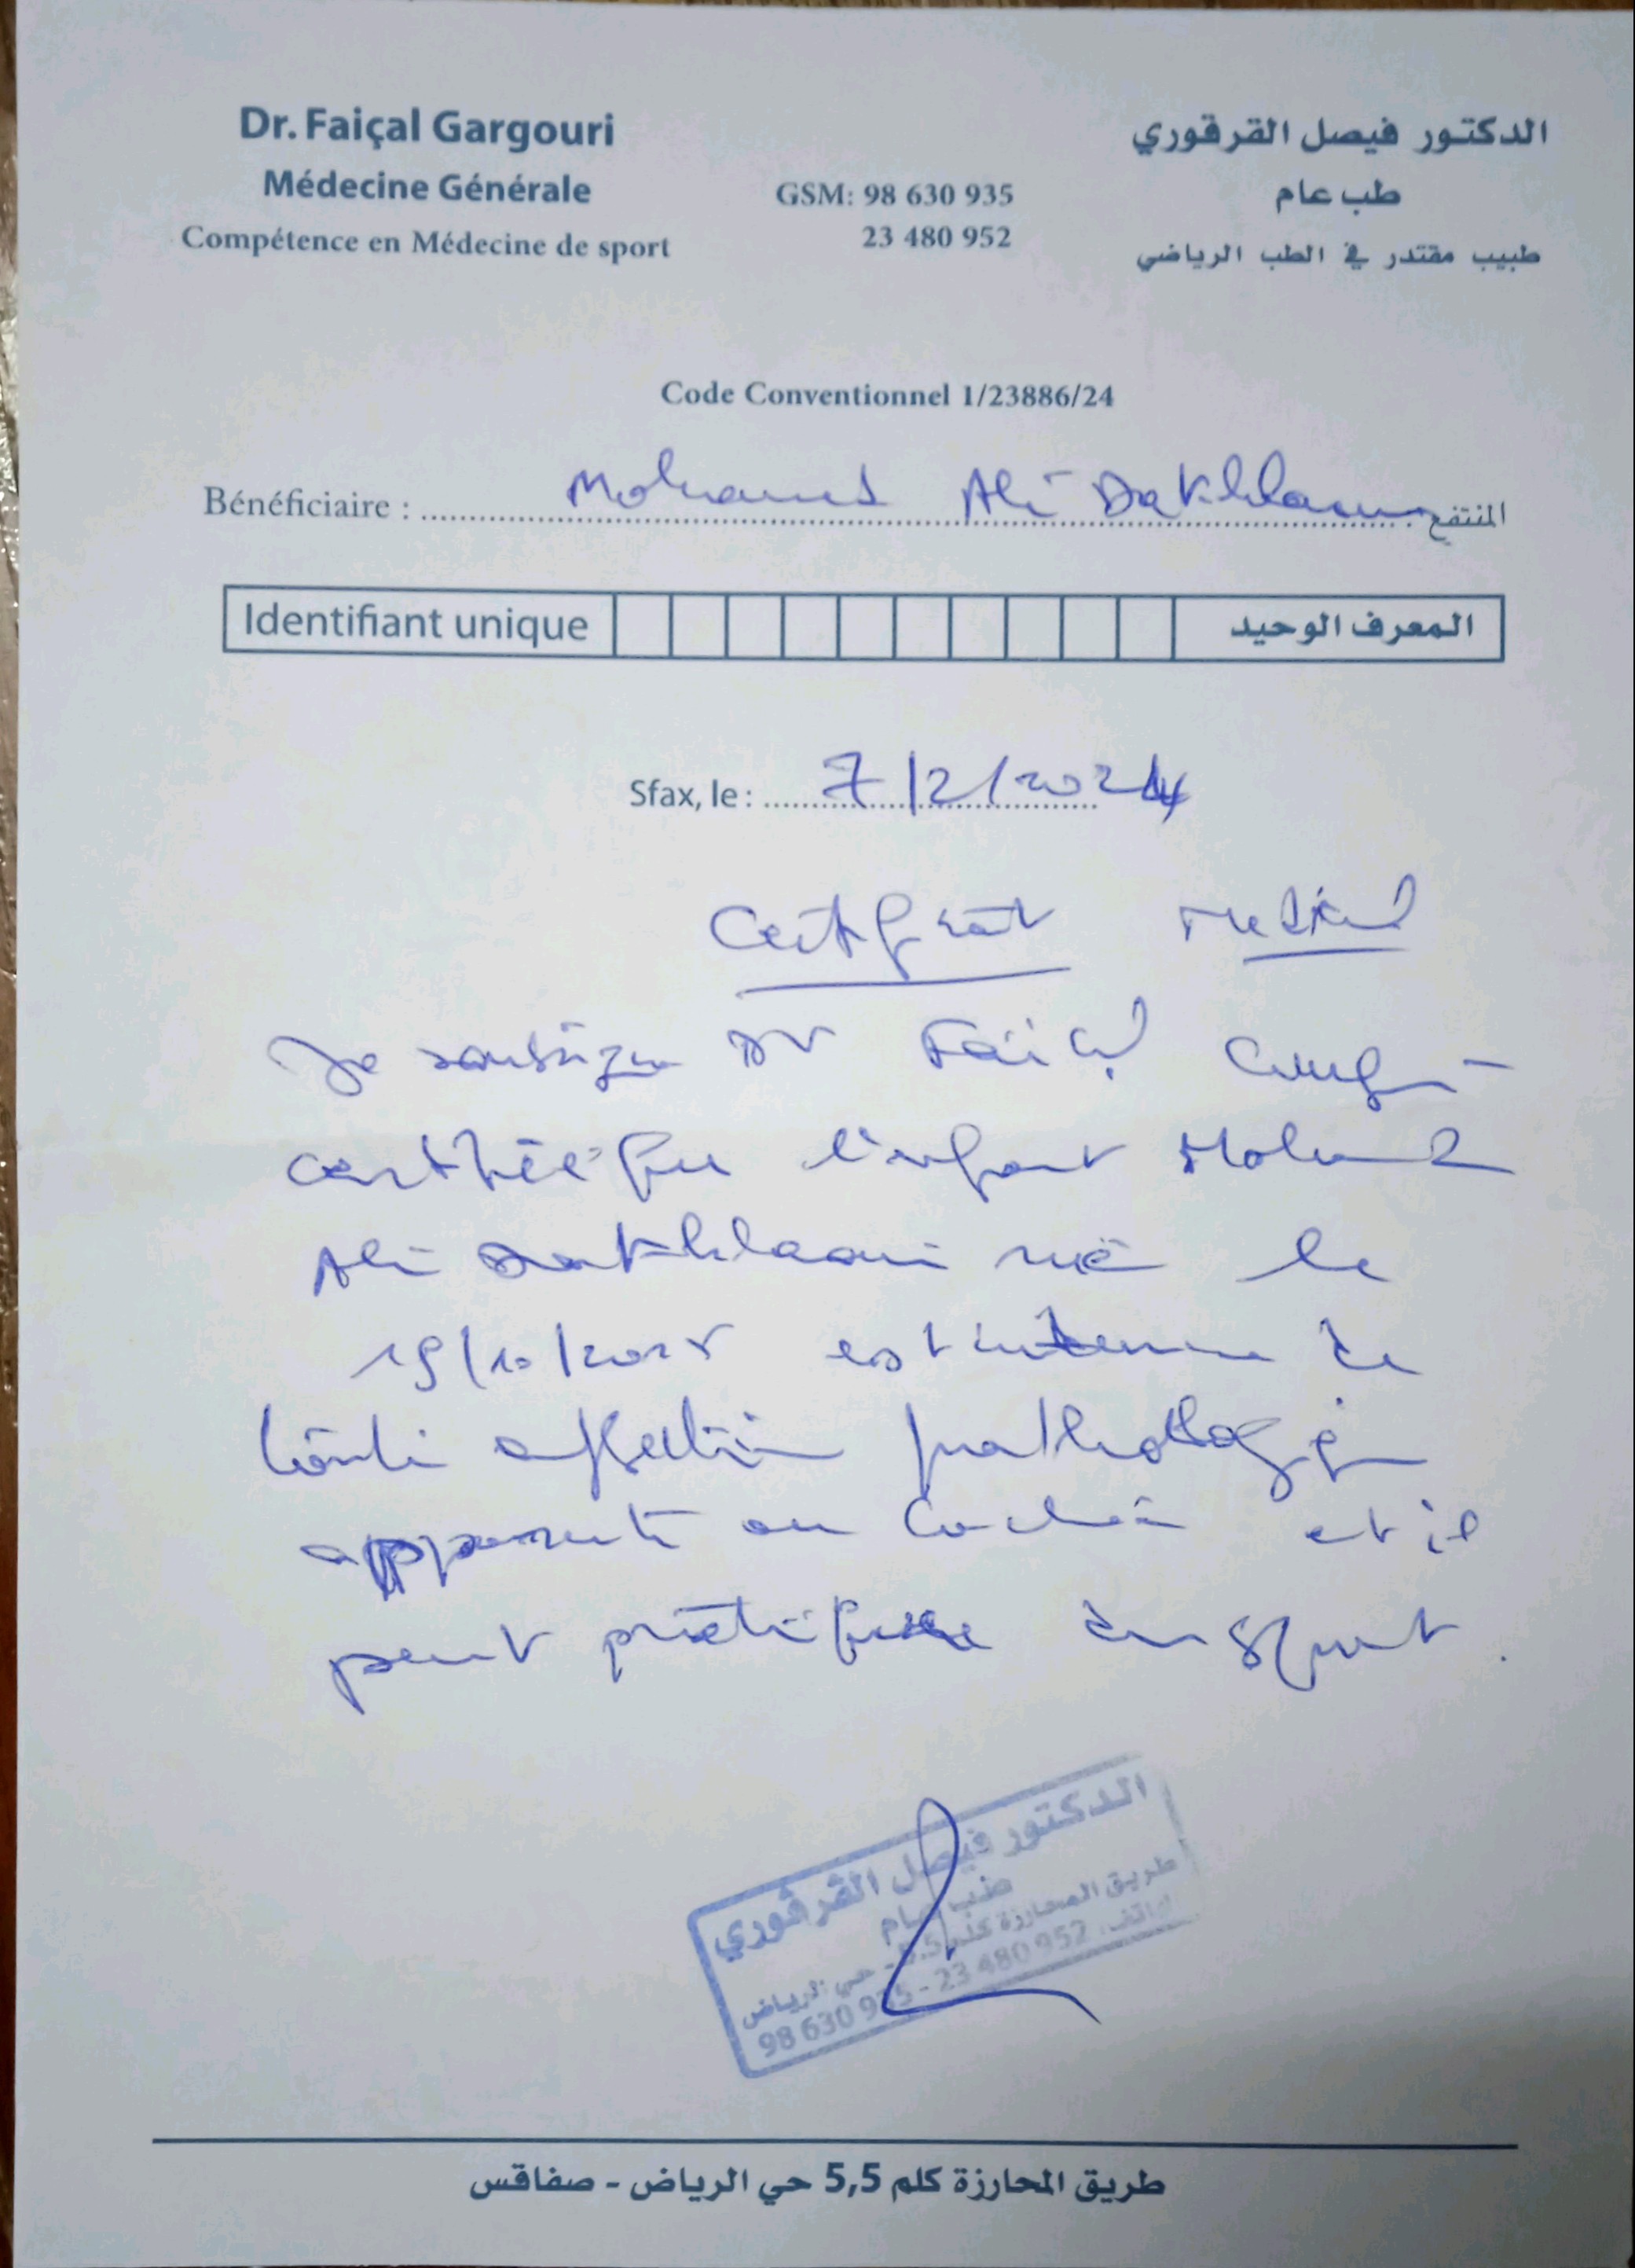 Dr. Faiçal Gargouri
Médecine Générale
Compétence en Médecine de sport
GSM: 98 630 935
23 480 952
الدكتور فيصل القرقوري
طب عام
طبيب مقتدر في الطب الرياضي
Code Conventionnel 1/23886/24
Bénéficiaire : Mohamed Ali Dakhlaoui المنتفع
Identifiant unique المعرف الوحيد
Sfax, le : 7/2/2024
Certificat Médical
Je soussigné Dr Faiçal
certifie que l'enfant Mohamed
Ali Dakhlaoui né le
est indemne de
toute affection pathologique
apparente ou et il
peut pratiquer du sport.
الدكتور فيصل القرقوري
طب عام
طريق المحارزة كلم 5.5 - حي الرياض
الهاتف: 98 630 935 - 23 480 952
طريق المحارزة كلم 5,5 حي الرياض - صفاقس